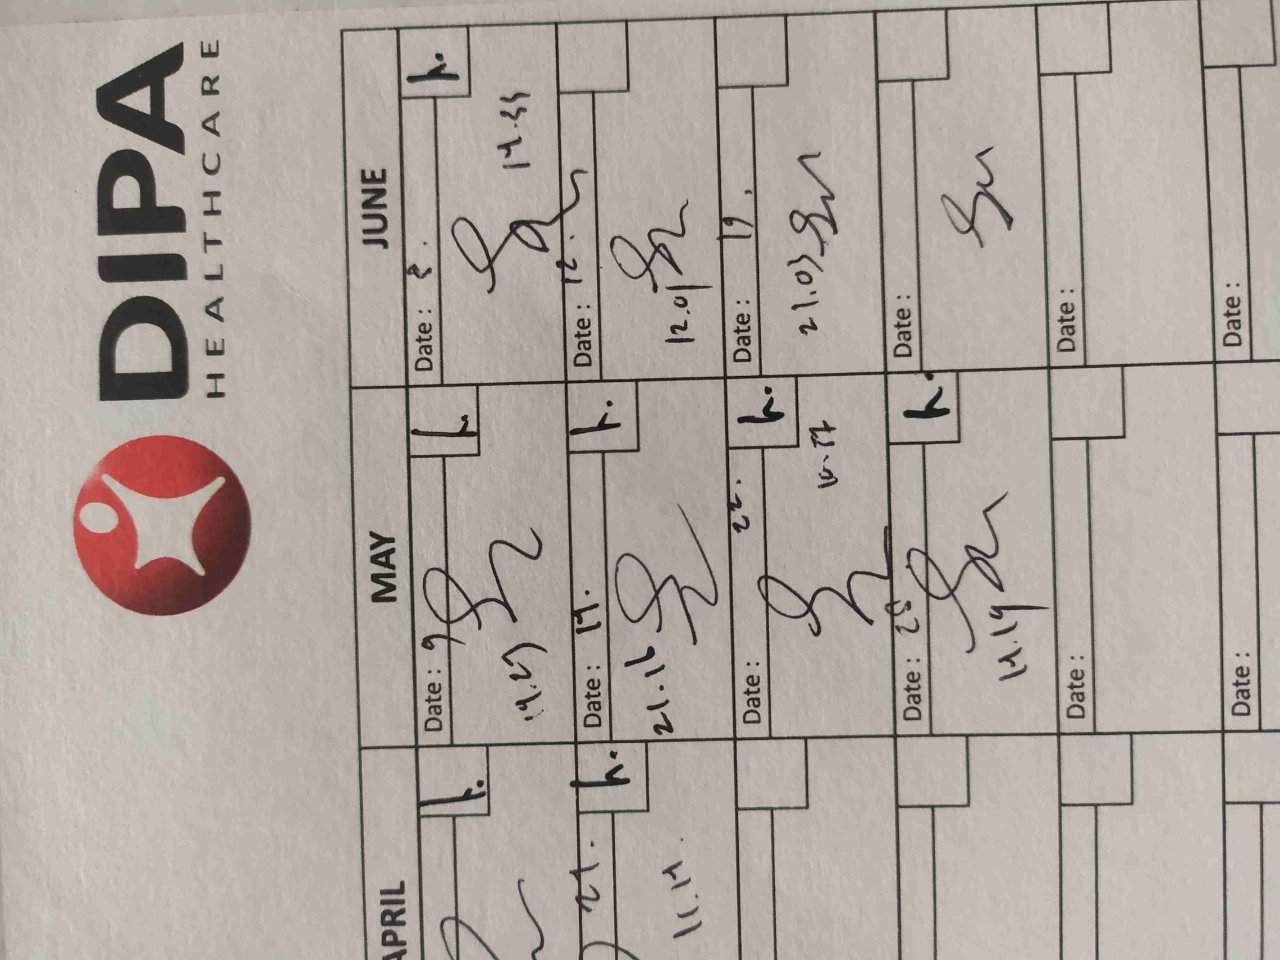 DIPA
HEALTHCARE
APRIL
MAY
JUNE
h.
Date : 9
h.
19.29
Date : 8.
h.
14.55
21.
h.
11.14.
Date : 17.
h.
21.16
Date : 12.
12.01
Date :
22.
h.
Date : 19.
21.03
Date : 28
h.
14.19
Date :
Date :
Date :
Date :
Date :